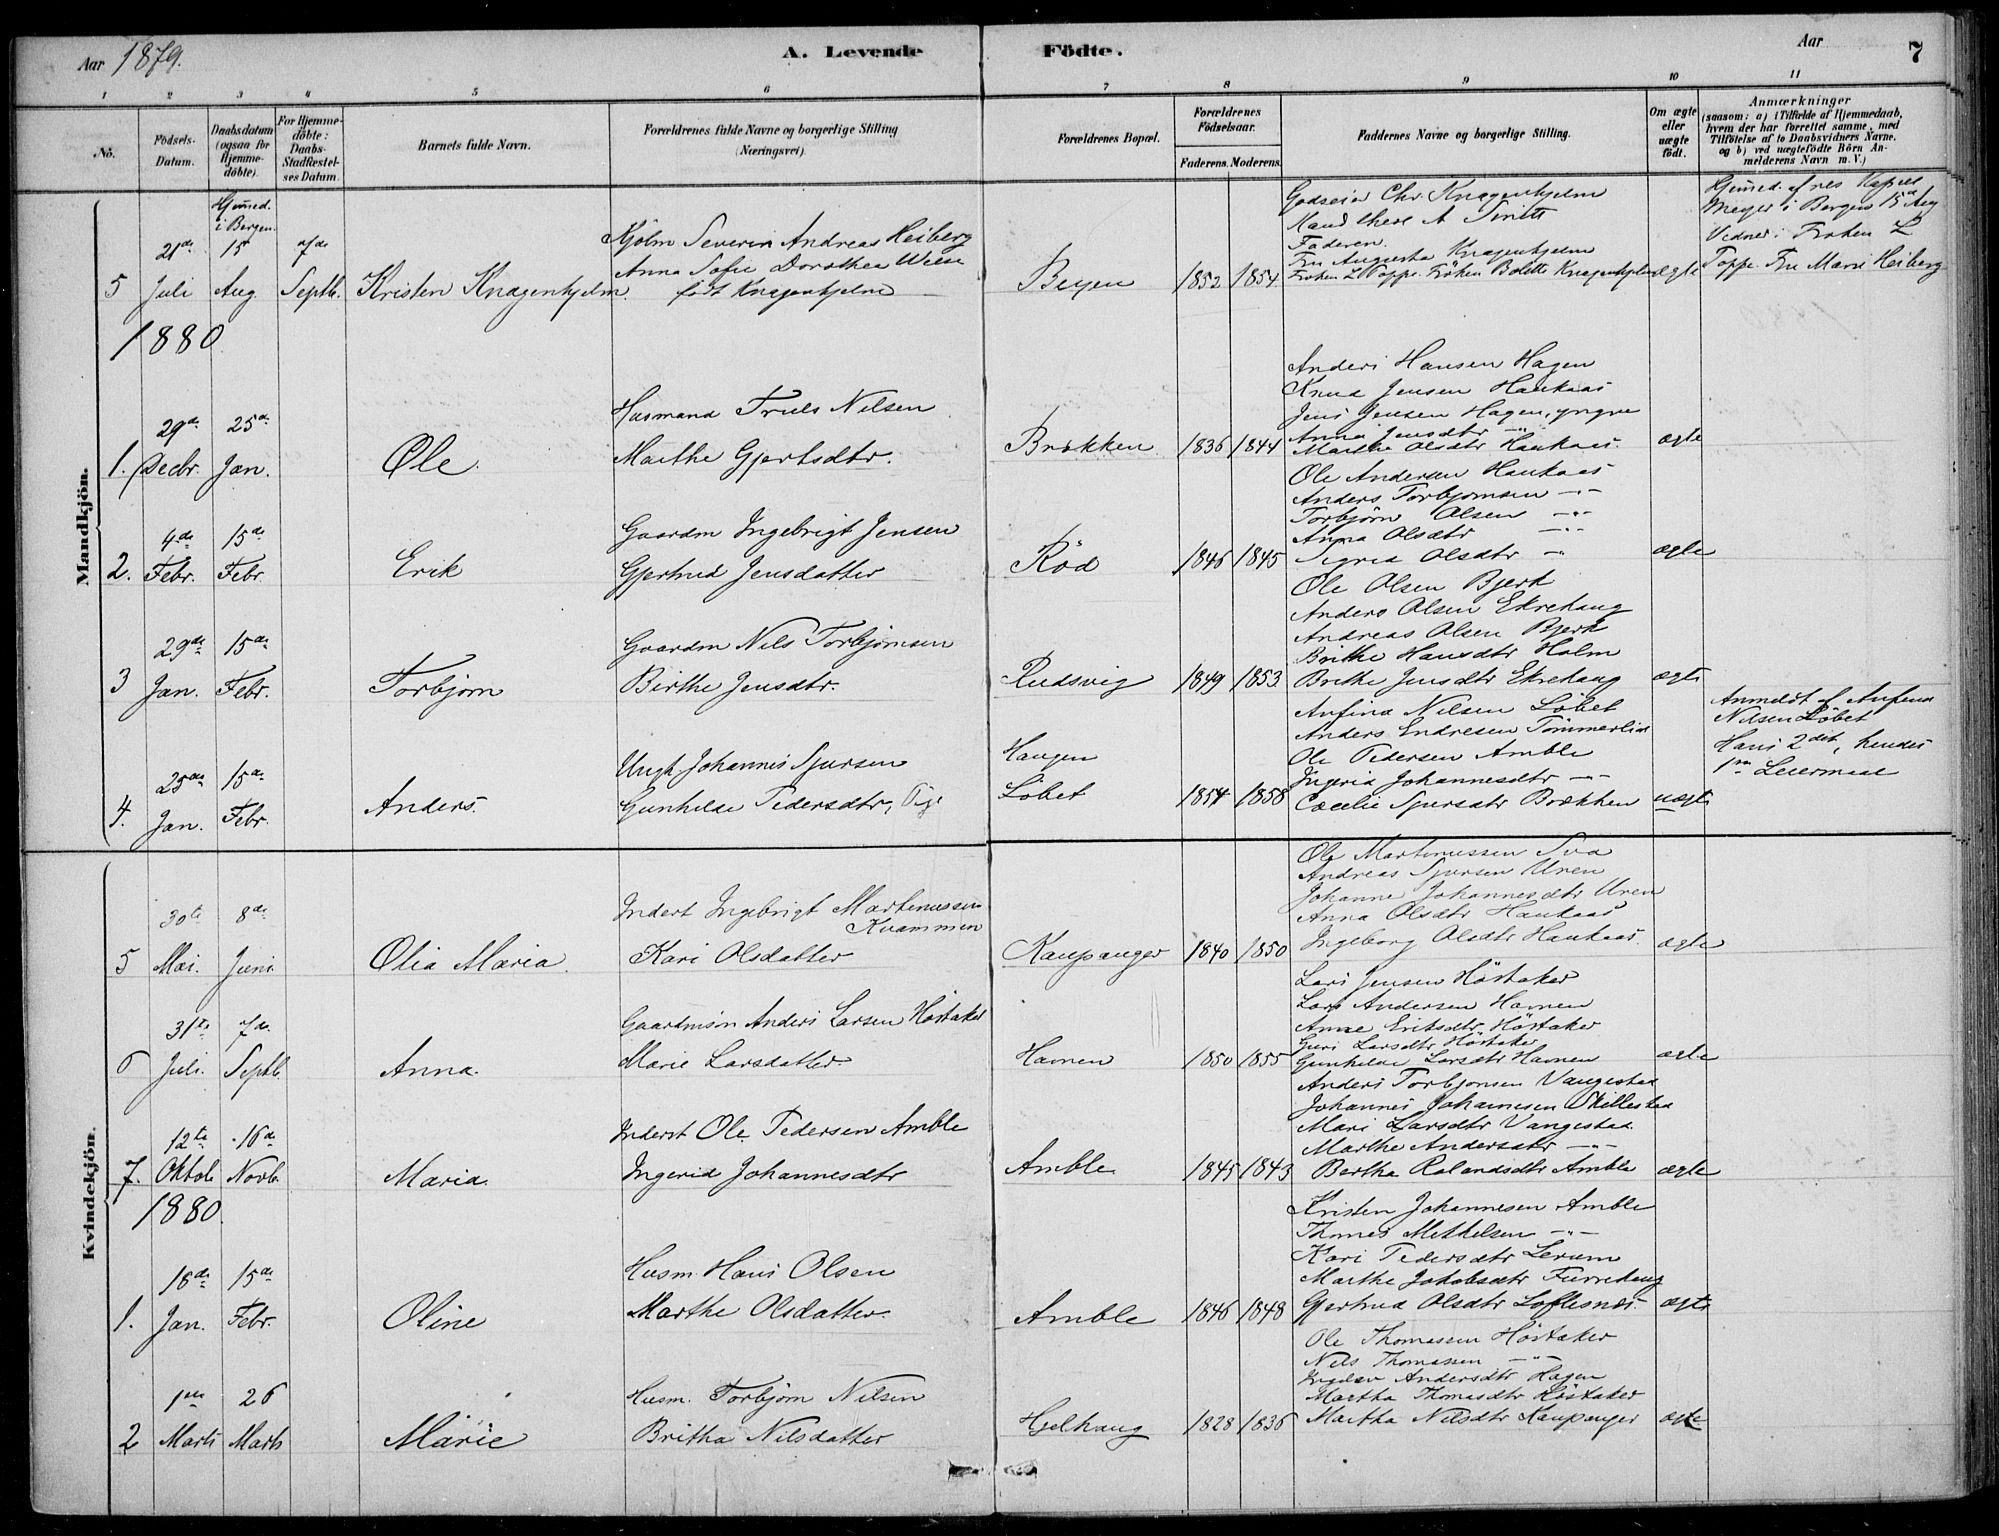 Aar 1879.
A. Levende Födte.
Aar
7
1 2 3 4 5 6 7 8 9 10 11
No.
Födsels-Datum.
Daabsdatum (ogsaa for Hjemme-döbte).
For Hjemme-döbte: Daabs-Stadfæstel-ses Datum.
Barnets fulde Navn.
Forældrenes fulde Navne og borgerlige Stilling (Næringsvei).
Forældrenes Bopæl.
Forældrenes Födselsaar.
Faderens. Moderens.
Faddernes Navne og borgerlige Stilling.
Om ægte eller uægte födt.
Anmærkninger
(saasom: a) i Tilfælde af Hjemmedaab, hvem der har forrettet samme, med Tilföielse af to Daabsvidners Navne. og b) ved uægtefödte Börn An-melderens Navn m. V.)
Mandkjön.
Hjemmed. i Bergen
5 21de Juli 15 Aug 7de Septb. Kristen Knagenhjelm
Kjølm Severin Andreas Heiberg
Anna Sofie Dorothea Weise
født Knagenhjelm
Bergen 1852 1854
Godseier Chr. Knagenhjelm
A Smitt
Faderen.
Fru Augusta Knagenhjelm
Frøken L Toppe. Frøken Bolette Knagenhjelm
ægte
Hjemmed. af res Kapel
Meyer i Bergen 15d Aug
Vidner: Frøken L
Toppe. Fru Marie Heiberg
1880
1. 29de Decbr. 25de Jan. Ole.
Husmand Truls Nilsen
Marthe Gjertsdtr.
Brækken 1836 1844
Anders Hansen Hagen
Knud Jensen Haukaas
Jens Jensen Hagen, yngre
Anna Jensdtr
Marthe Olsdtr Haukaas.
ægte
2. 4de Febr. 15de Febr. Erik
Gaardm Ingebrigt Jensen
Gjertrud Jensdatter
Röd 1846 1845
Ole Andersen Haukaas
Anders Torbjørnsen -"-
Torbjørn Olsen -"-
Anna Olsdtr -"-
Sigrid Olsdtr "
ægte
3 29de Jan. 15de Febr. Torbjørn
Gaardm Nils Torbjørnsen
Birthe Jensdtr.
Rudsvig 1849 1853
Ole Olsen Bjerk
Anders Olsen Ekrehaug
Andreas Olsen Bjerk
Brithe Hansdtr Holm
Brithe Jensdtr Ekrehaug
ægte
4. 25de Jan. 15de Febr. Anders.
Ungk. Johannes Sjursen
Gunhilde Pedersdtr, Pige
Haugen
Løbet 1854 1858
Anfind Nilsen Løbet
Anders Endresen Tømmerlid
Ole Pedersen Amble
Ingerid Johannesdtr -"-
Cæcelie Sjursdtr Brækken
uægte
Anmeldt af Anfind
Nilsen Løbet
Hans 2det, hendes
1ste Leiermaal
Kvindekjön.
5 30te Mai. 8de Juni Olia Maria.
Inderst Ingebrigt Martinussen
Kvammen
Kari Olsdatter
Kaupanger 1840 1850
Ole Martinussen Sva
Andreas Sjursen Uren
Johanne Johannesdtr Uren
Anna Olsdtr Haukaas
Ingeborg Olsdtr Haukaas.
ægte
6 31te Juli. 7de Septb. Anna.
Gaardmøn Anders Larsen Høstaker
Marie Larsdatter.
Havnen 1850 1855
Lars Jensen Höstaker
Lars Andersen Havnen
Anne Eriksdtr Höstaker
Guri Larsdtr Höstaker
Gunhilde Larsdtr Havnen
ægte
7. 12te Oktob 16de Novb. Maria.
Inderst Ole Pedersen Amble
Ingerid Johannesdtr
Amble 1845 1843
Anders Torbjørnsen Vangestad
Johannes Johannesen Skillestad
Mari Larsdtr Vangestad
Marthe Andersdtr -"-
Bertha Rolandsdtr Amble
ægte
1880.
1. 18de Jan. 15de Febr. Oline
Husm. Hans Olsen
Marthe Olsdatter.
Amble 1846 1848
Kristen Johannesen Amble
Thomas Methelsen -"-
Kari Pedersdtr Lerum
Marthe Jakobsdtr Furrehaug
Gjertrud Olsdtr Loftesnæs.
ægte
2 1ste Marts 26 Marts Marie
Husm. Torbjørn Nilsen
Britha Nilsdatter
Hjelhaug 1828 1836
Ole Thomassen Höstaker
Nils Thomassen -"-
Andersdtr Hagen
Martha Thomasdtr Höstaker
Martha Nilsdtr Kaupanger
ægte